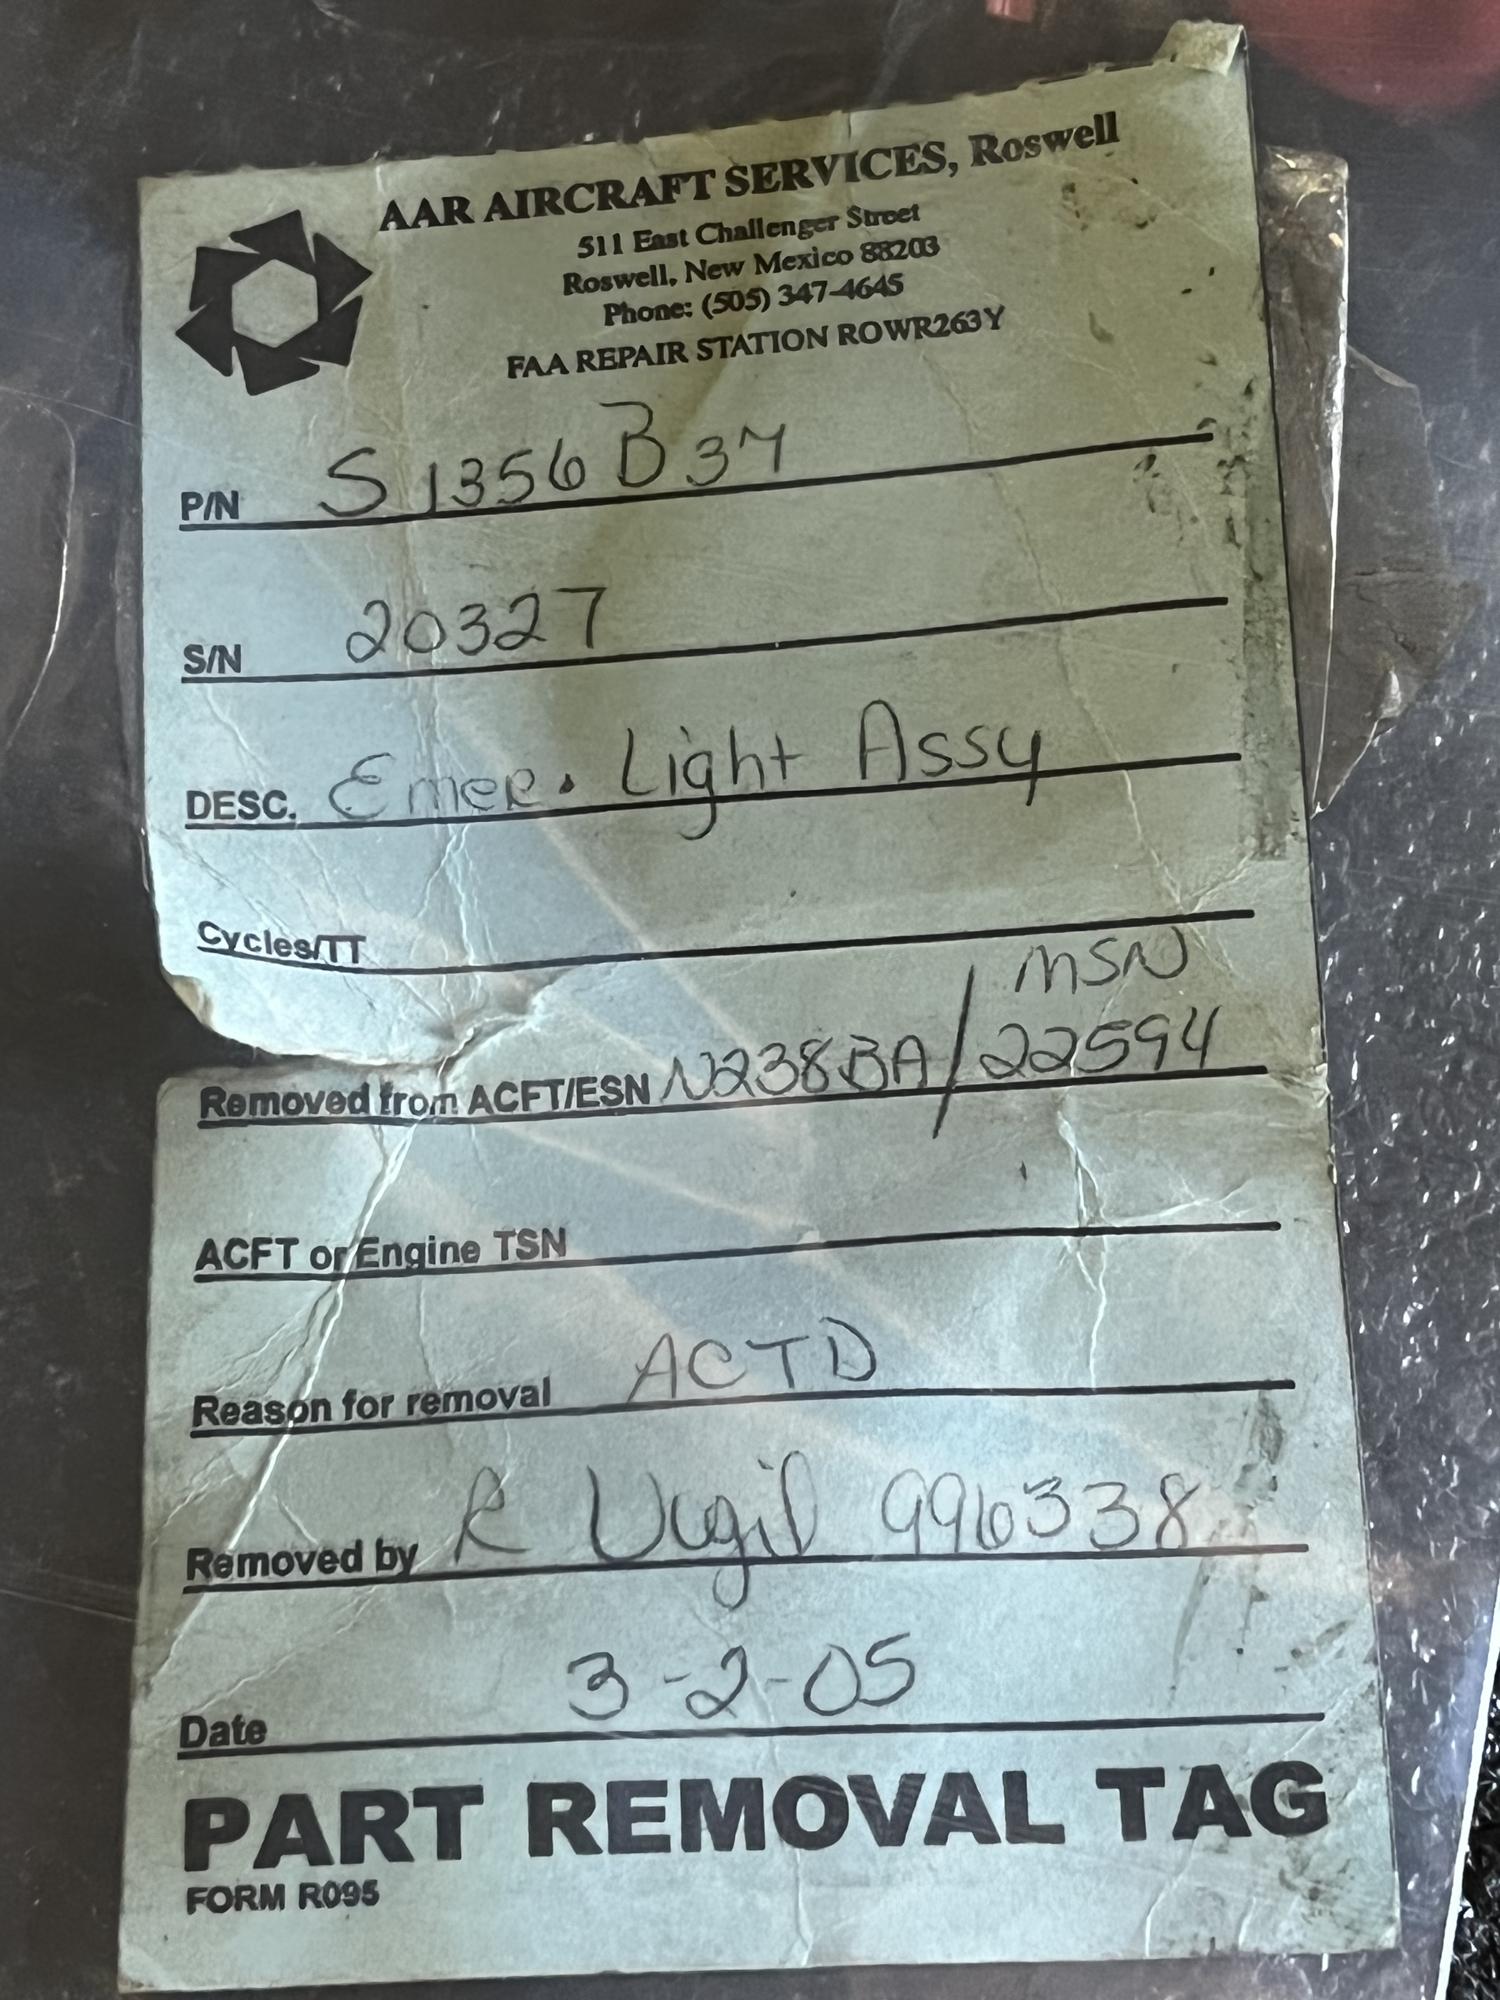 AAR AIRCRAFT SERVICES, Roswell
511 East Challenger Street
Roswell, New Mexico 88203
Phone: (505) 347-4645
FAA REPAIR STATION ROWR263Y
P/N S1356B37
S/N 20327
DESC. Emer. Light Assy
Cycles/TT
MSN
Removed from ACFT/ESN N238BA/22594
ACFT or Engine TSN
Reason for removal ACTD
Removed by R Vigil 996338
Date 3-2-05
PART REMOVAL TAG
FORM R095